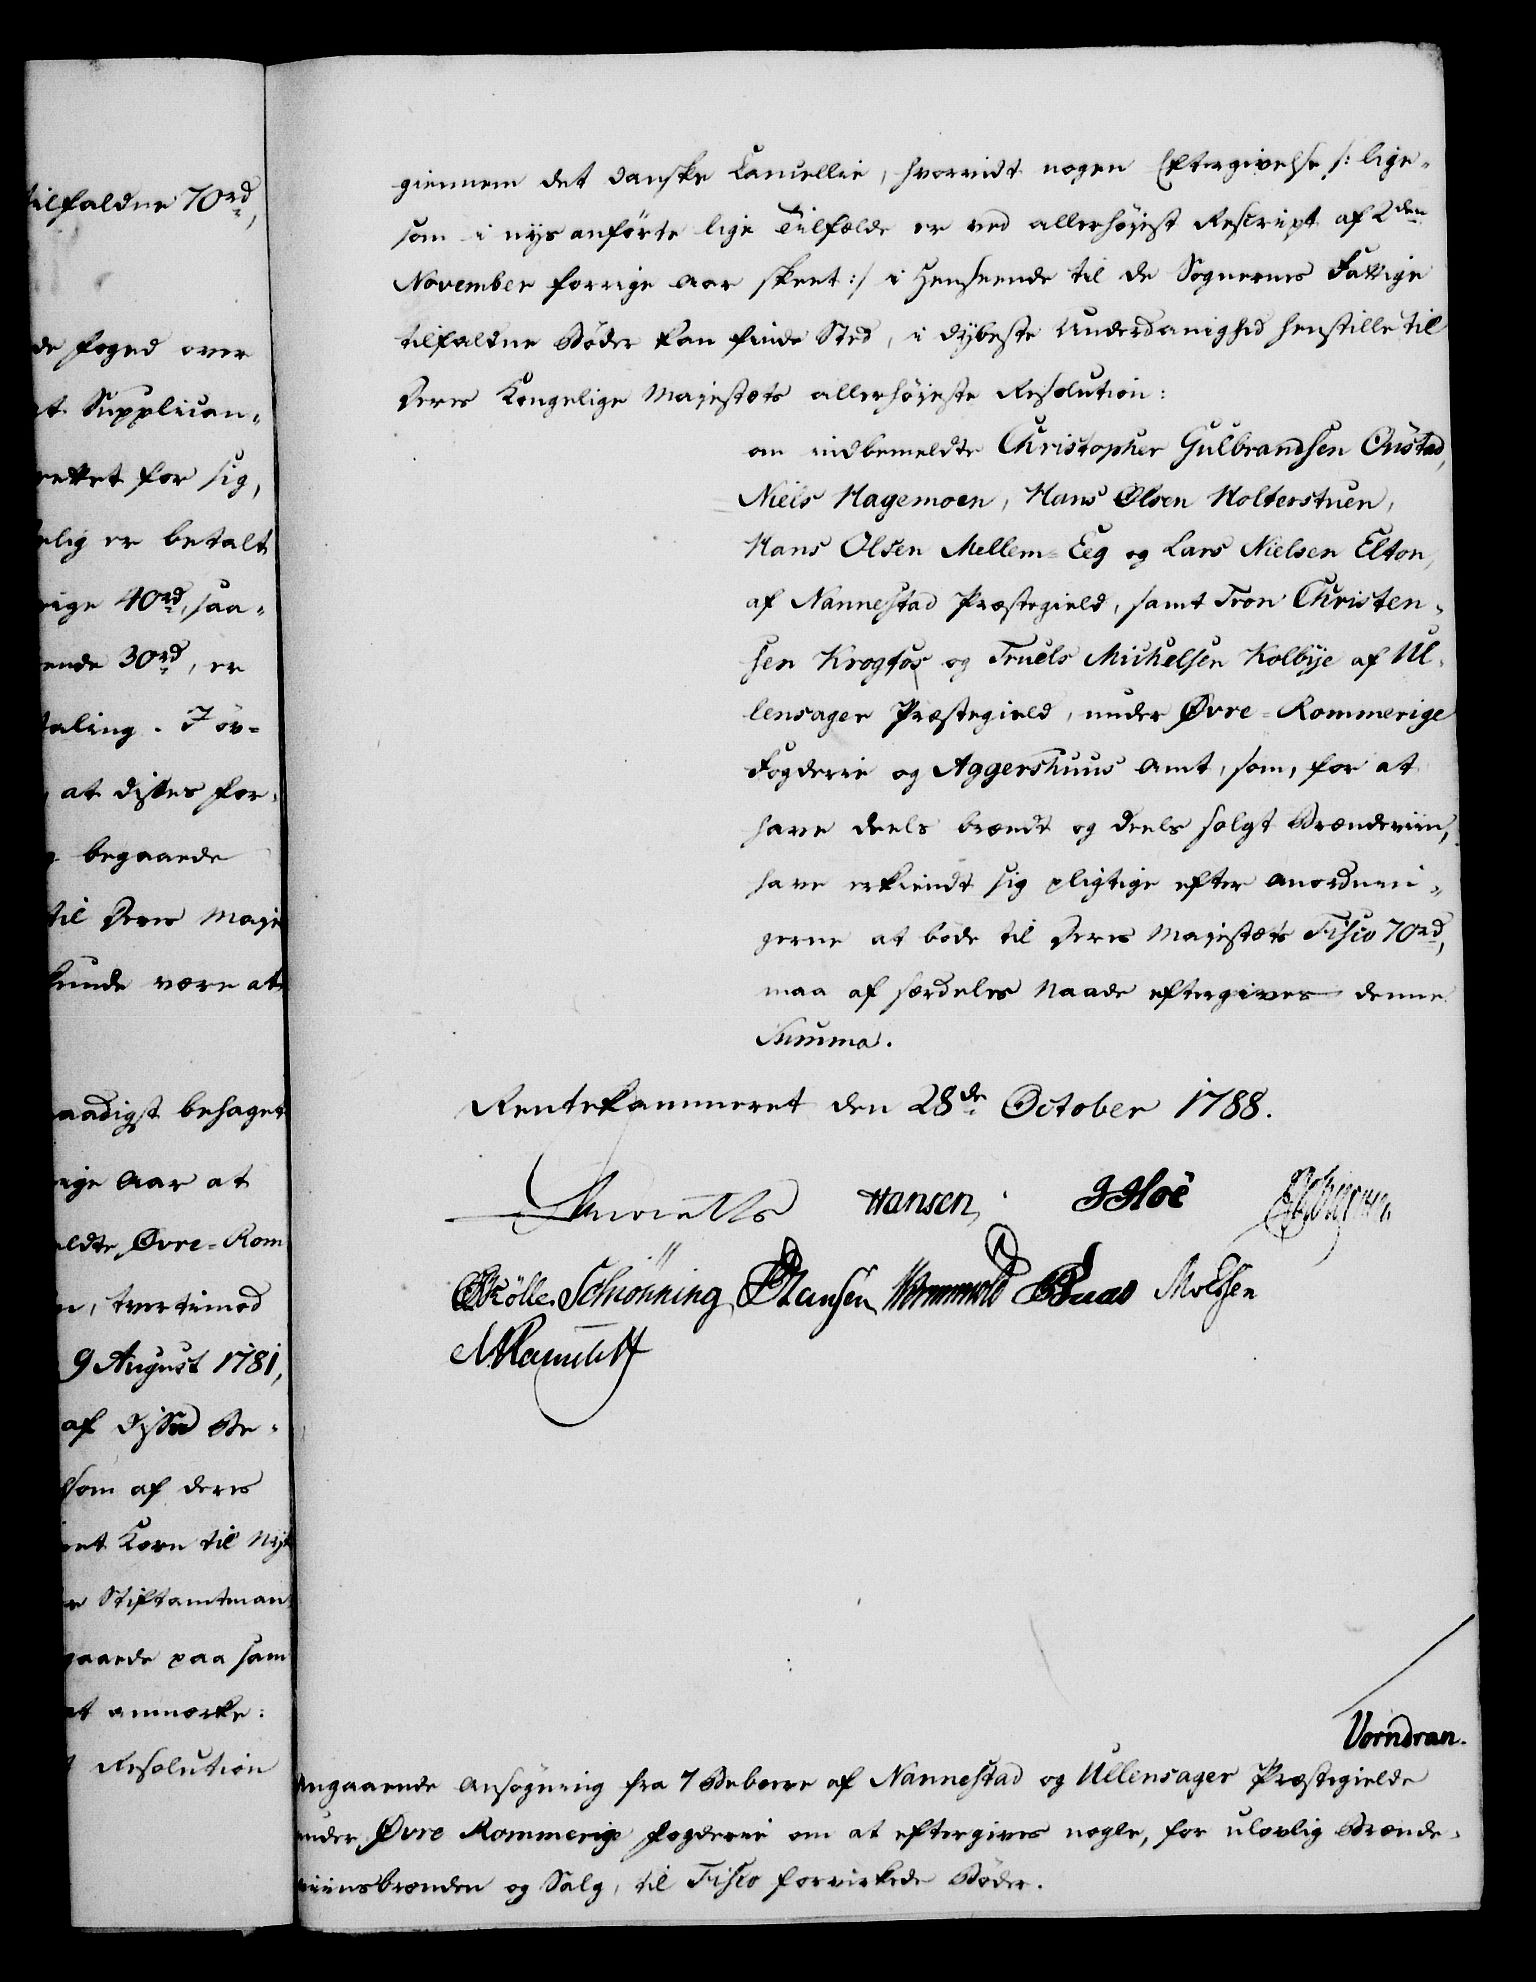 tilfaldne 70rd,
de Foged over
at Supplican-
rettet for sig,
elig er betalt
rige 40rd, saa-
ende 30rd, er
taling. I öv-
at disses for-
begaaede
til Deres Maje
kunde være at
aadigst behaget
rige Aar at
eldte Øvre-Rom
tvertimod
9 August 1781,
af disse Be-
som af deres
et Korn til Nyt
Stiftamtman
gaaende paa sam
at anmærke:
Resolution
giennem det danske Cancellie, hvorvidt nogen Eftergivelse /: lige-
som i nys anförte lige Tilfælde er ved allerhöyest Rescript af 2den
November forrige Aar skeet :/ i Henseende til de Sognenes Fattige
tilfaldne Böder kan finde Sted, i dybeste Underdanighed henstille til
Deres Kongelige Majestæts allerhöyeste Resolution:
om indbemeldte Christopher Gulbrandsen Onstad,
Niels Hagemoen, Hans Olsen Holterstuen,
Hans Olsen Mellem-Eeg og Lars Nielsen Elton,
af Nannestad Præstegield, samt Tron Christen-
sen Krogfos og Truels Michelsen Kolbye af Ul-
lensager Præstegield, under Øvre-Rommerige
Fogderie og Aggershuus Amt, som, for at
have deels brændt og deels solgt Brændeviin,
have erkiendt sig pligtige efter Anordnin-
gerne at böde til Deres Majestæts Fisco 70rd,
maa af særdeles Naade eftergives denne
Summa.
Rentekammeret den 28de October 1788.
Hansen, J Hoë
Schiönning, Hansen, Wormskiold Moldsen
Vorndran.
Angaaende Ansögning fra 7 Beboere af Nannestad og Ullensager Præstegielde
under Øvre Rommerige Fogderie om at eftergives nogle, for ulovlig Brænde-
viinsbrænden og Salg, til Fisco forvirkede Böder.